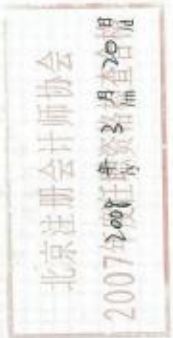 北京注册会计师协会
2007年度任职资格检查合格
2008年3月20日
/y /m /d